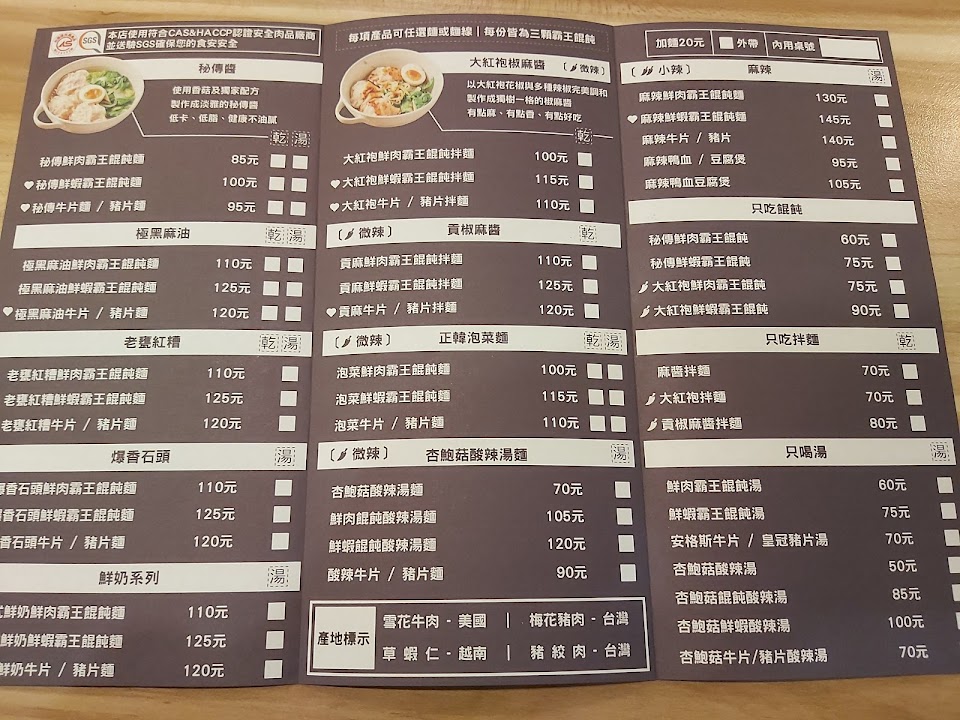 SGS
本店使用符合CAS&HACCP認證安全肉品廠商
並送驗SGS確保您的食安安全
秘傳醬
使用香菇及獨家配方
製作成淡雅的秘傳醬
低卡、低脂、健康不油膩
乾 湯
秘傳鮮肉霸王餛飩麵 85元
秘傳鮮蝦霸王餛飩麵 100元
秘傳牛片麵 / 豬片麵 95元
極黑麻油 乾 湯
極黑麻油鮮肉霸王餛飩麵 110元
極黑麻油鮮蝦霸王餛飩麵 125元
極黑麻油牛片 / 豬片麵 120元
老甕紅糟 乾 湯
老甕紅糟鮮肉霸王餛飩麵 110元
老甕紅糟鮮蝦霸王餛飩麵 125元
老甕紅糟牛片 / 豬片麵 120元
爆香石頭 湯
爆香石頭鮮肉霸王餛飩麵 110元
爆香石頭鮮蝦霸王餛飩麵 125元
香石頭牛片 / 豬片麵 120元
鮮奶系列 湯
式鮮奶鮮肉霸王餛飩麵 110元
鮮奶鮮蝦霸王餛飩麵 125元
鮮奶牛片 / 豬片麵 120元
每項產品可任選麵或麵線 | 每份皆為三顆霸王餛飩
大紅袍椒麻醬 (微辣)
以大紅袍花椒與多種辣椒完美調和
製作成獨樹一格的椒麻醬
有點麻、有點香、有點好吃
乾
大紅袍鮮肉霸王餛飩拌麵 100元
大紅袍鮮蝦霸王餛飩拌麵 115元
大紅袍牛片 / 豬片拌麵 110元
(微辣) 貢椒麻醬 乾
貢麻鮮肉霸王餛飩拌麵 110元
貢麻鮮蝦霸王餛飩拌麵 125元
貢麻牛片 / 豬片拌麵 120元
(微辣) 正韓泡菜麵 乾 湯
泡菜鮮肉霸王餛飩麵 100元
泡菜鮮蝦霸王餛飩麵 115元
泡菜牛片 / 豬片麵 110元
(微辣) 杏鮑菇酸辣湯麵 湯
杏鮑菇酸辣湯麵 70元
鮮肉餛飩酸辣湯麵 105元
鮮蝦餛飩酸辣湯麵 120元
酸辣牛片 / 豬片麵 90元
產地標示
雪花牛肉 - 美國 | 梅花豬肉 - 台灣
草 蝦 仁 - 越南 | 豬 絞 肉 - 台灣
加麵20元 外帶 內用桌號
(小辣) 麻辣 湯
麻辣鮮肉霸王餛飩麵 130元
麻辣鮮蝦霸王餛飩麵 145元
麻辣牛片 / 豬片 140元
麻辣鴨血 / 豆腐煲 95元
麻辣鴨血豆腐煲 105元
只吃餛飩
秘傳鮮肉霸王餛飩 60元
秘傳鮮蝦霸王餛飩 75元
大紅袍鮮肉霸王餛飩 75元
大紅袍鮮蝦霸王餛飩 90元
只吃拌麵 乾
麻醬拌麵 70元
大紅袍拌麵 70元
貢椒麻醬拌麵 80元
只喝湯 湯
鮮肉霸王餛飩湯 60元
鮮蝦霸王餛飩湯 75元
安格斯牛片 / 皇冠豬片湯 70元
杏鮑菇酸辣湯 50元
杏鮑菇餛飩酸辣湯 85元
杏鮑菇鮮蝦酸辣湯 100元
杏鮑菇牛片/豬片酸辣湯 70元